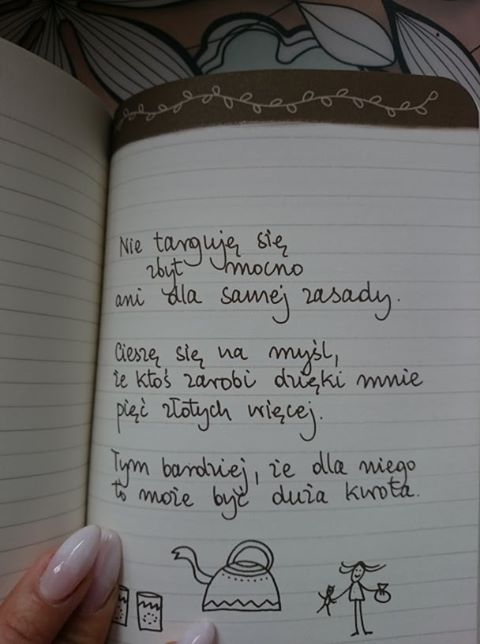 Nie targuję się
zbyt mocno
ani dla samej zasady.
Cieszę się na myśl,
że ktoś zarobi dzięki mnie
pięć złotych więcej.
Tym bardziej, że dla niego
to może być duża kwota.